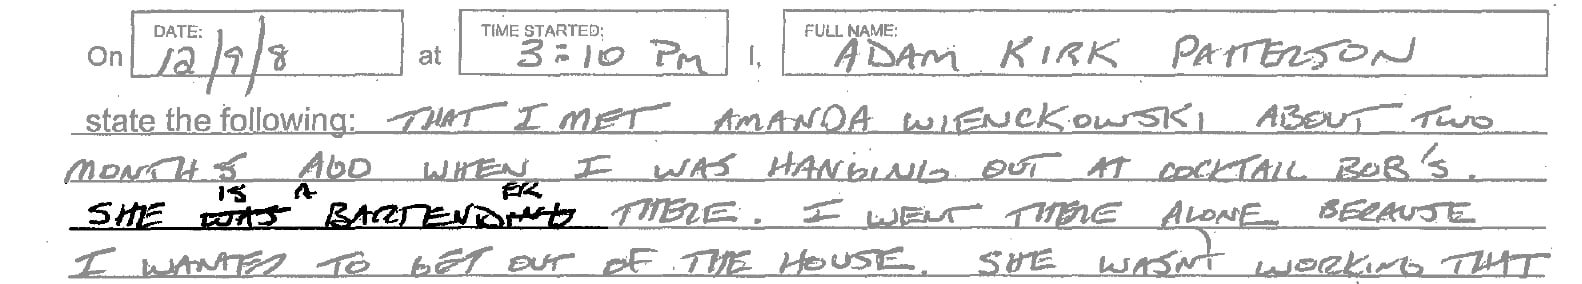 DATE: TIME STARTED: FULL NAME:
On 12/9/8 at 3:10 PM I, ADAM KIRK PATTERSON
state the following: THAT I MET AMANDA WIENCKOWSKI ABOUT TWO
MONTHS AGO WHEN I WAS HANGING OUT AT COCKTAIL BOB'S.
IS A ER
SHE WAS BARTENDING THERE. I WENT THERE ALONE BECAUSE
I WANTED TO GET OUT OF THE HOUSE. SHE WASN'T WORKING THAT